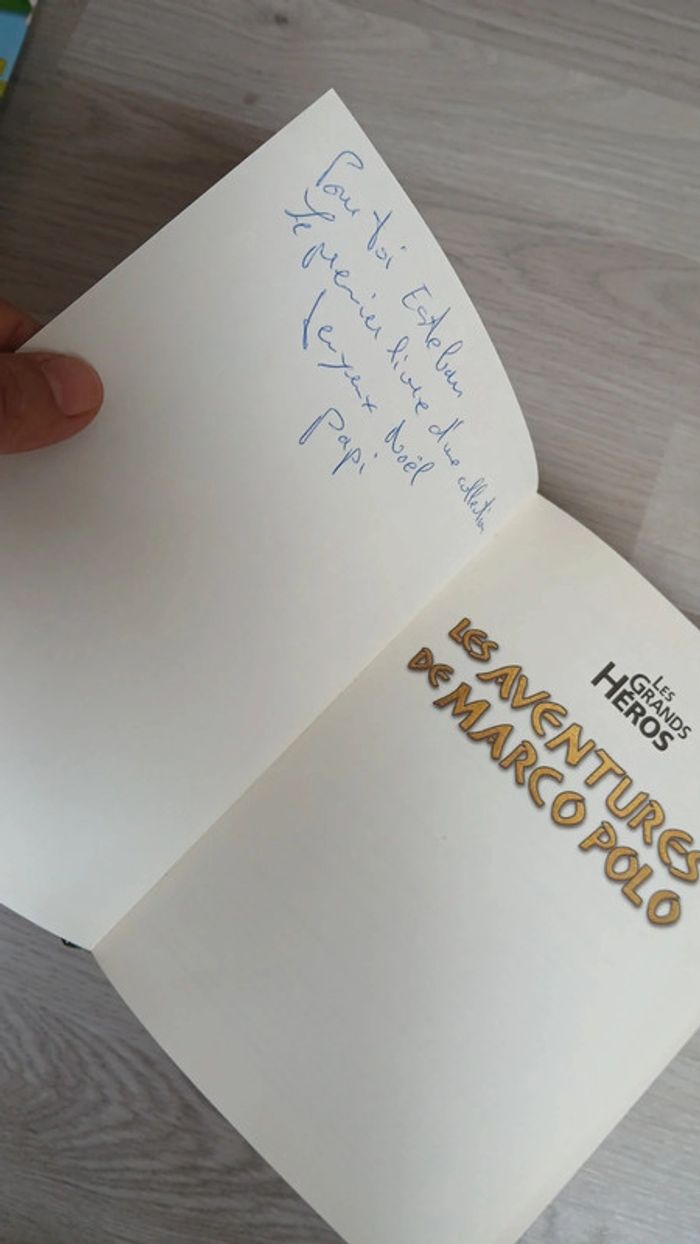 Pour toi Esteban
Le premier livre d'une collection
Joyeux Noël
papi
LES GRANDS HÉROS
LES AVENTURES
DE MARCO POLO